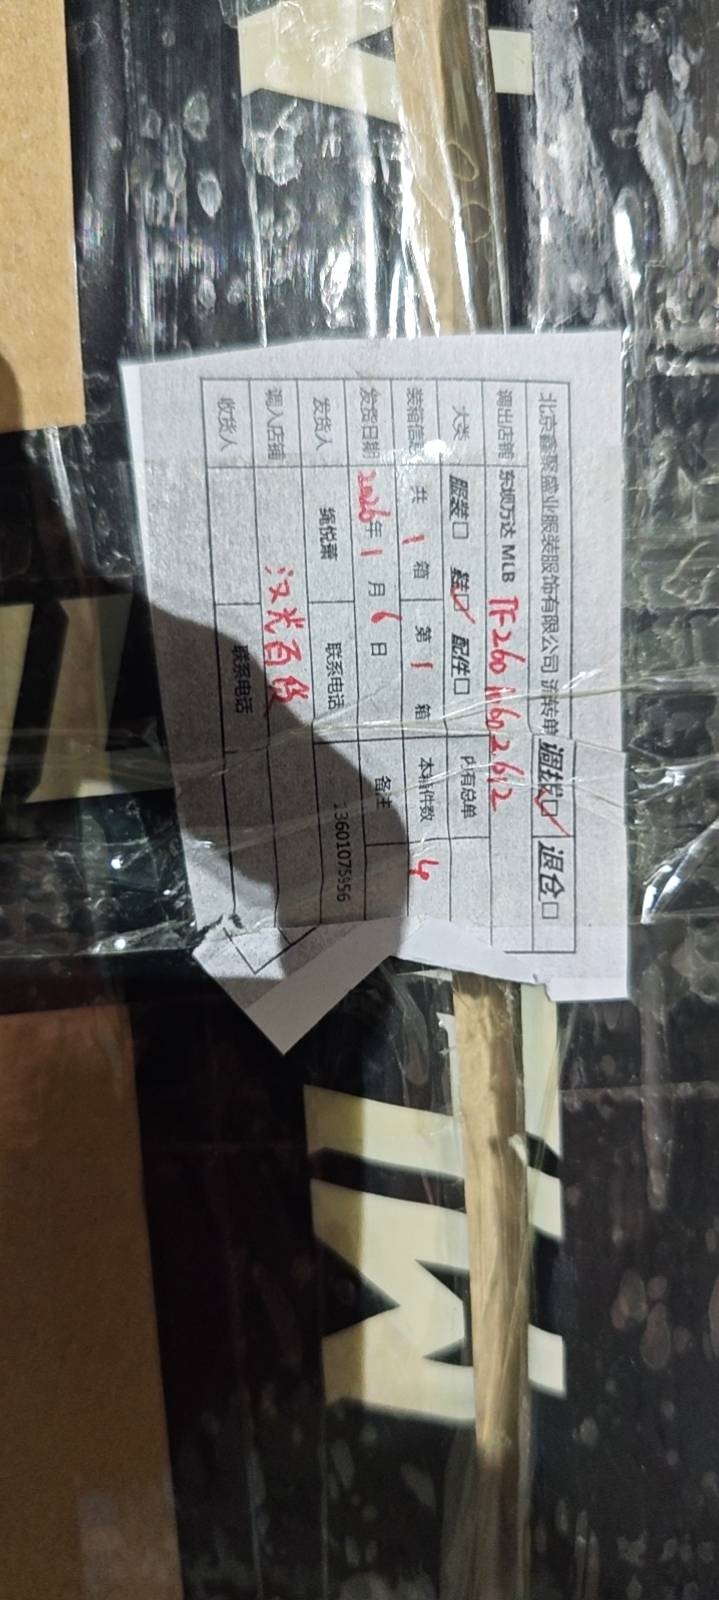 北京鑫聚盛业服装服饰有限公司 流转单 调拨☑ 退仓□
调出店铺 东坝万达 MLB TF26011602612
大类 服装□ 鞋☑ 配件□ 内有总单
装箱信息 共 1 箱 第 1 箱 本箱件数 4
发货日期 2026年 1 月 6 日 备注
发货人 绳悦萧 联系电话 13601075956
调入店铺 汉光百货
收货人 联系电话
ML